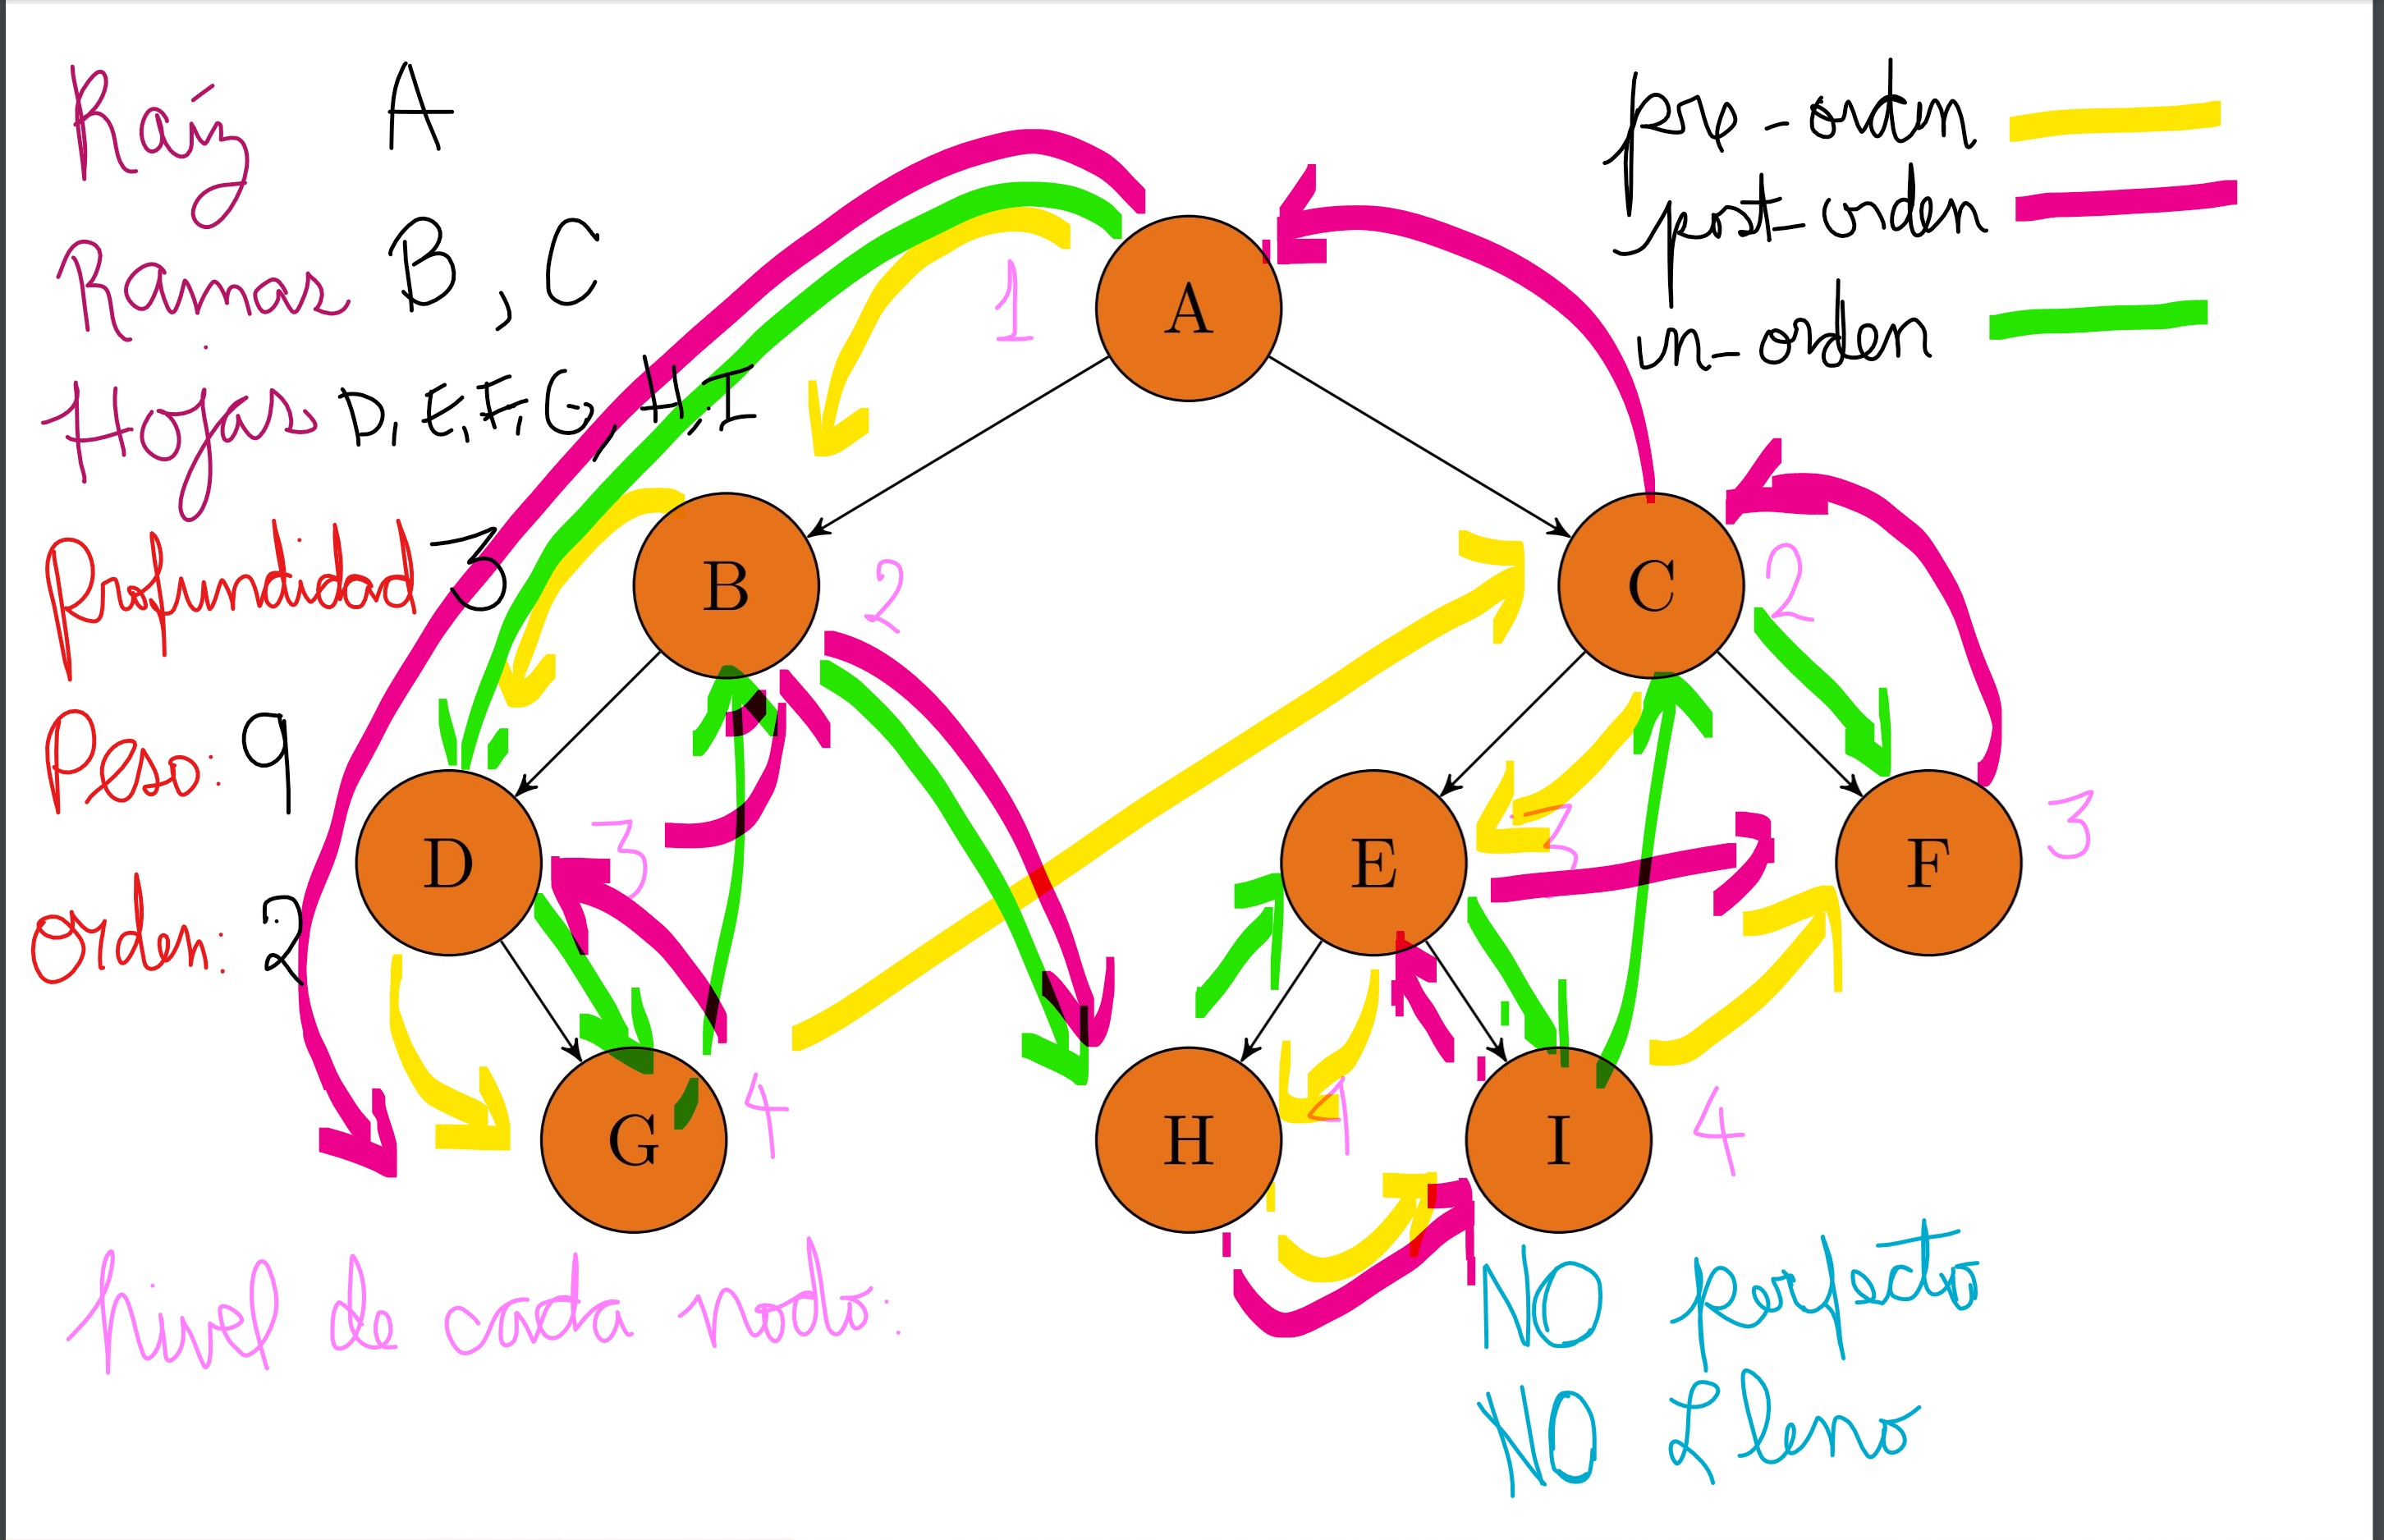 Raíz A
Ramas B, C
Hojas D, E, F, G, H, I
Profundidad 3
Peso: 9
orden: 2
pre-orden
post-orden
in-orden
A
1
B
2
C
2
D
3
E
3
F
3
G
4
H
4
I
4
Nivel de cada nodo:
NO perfecto
NO Lleno